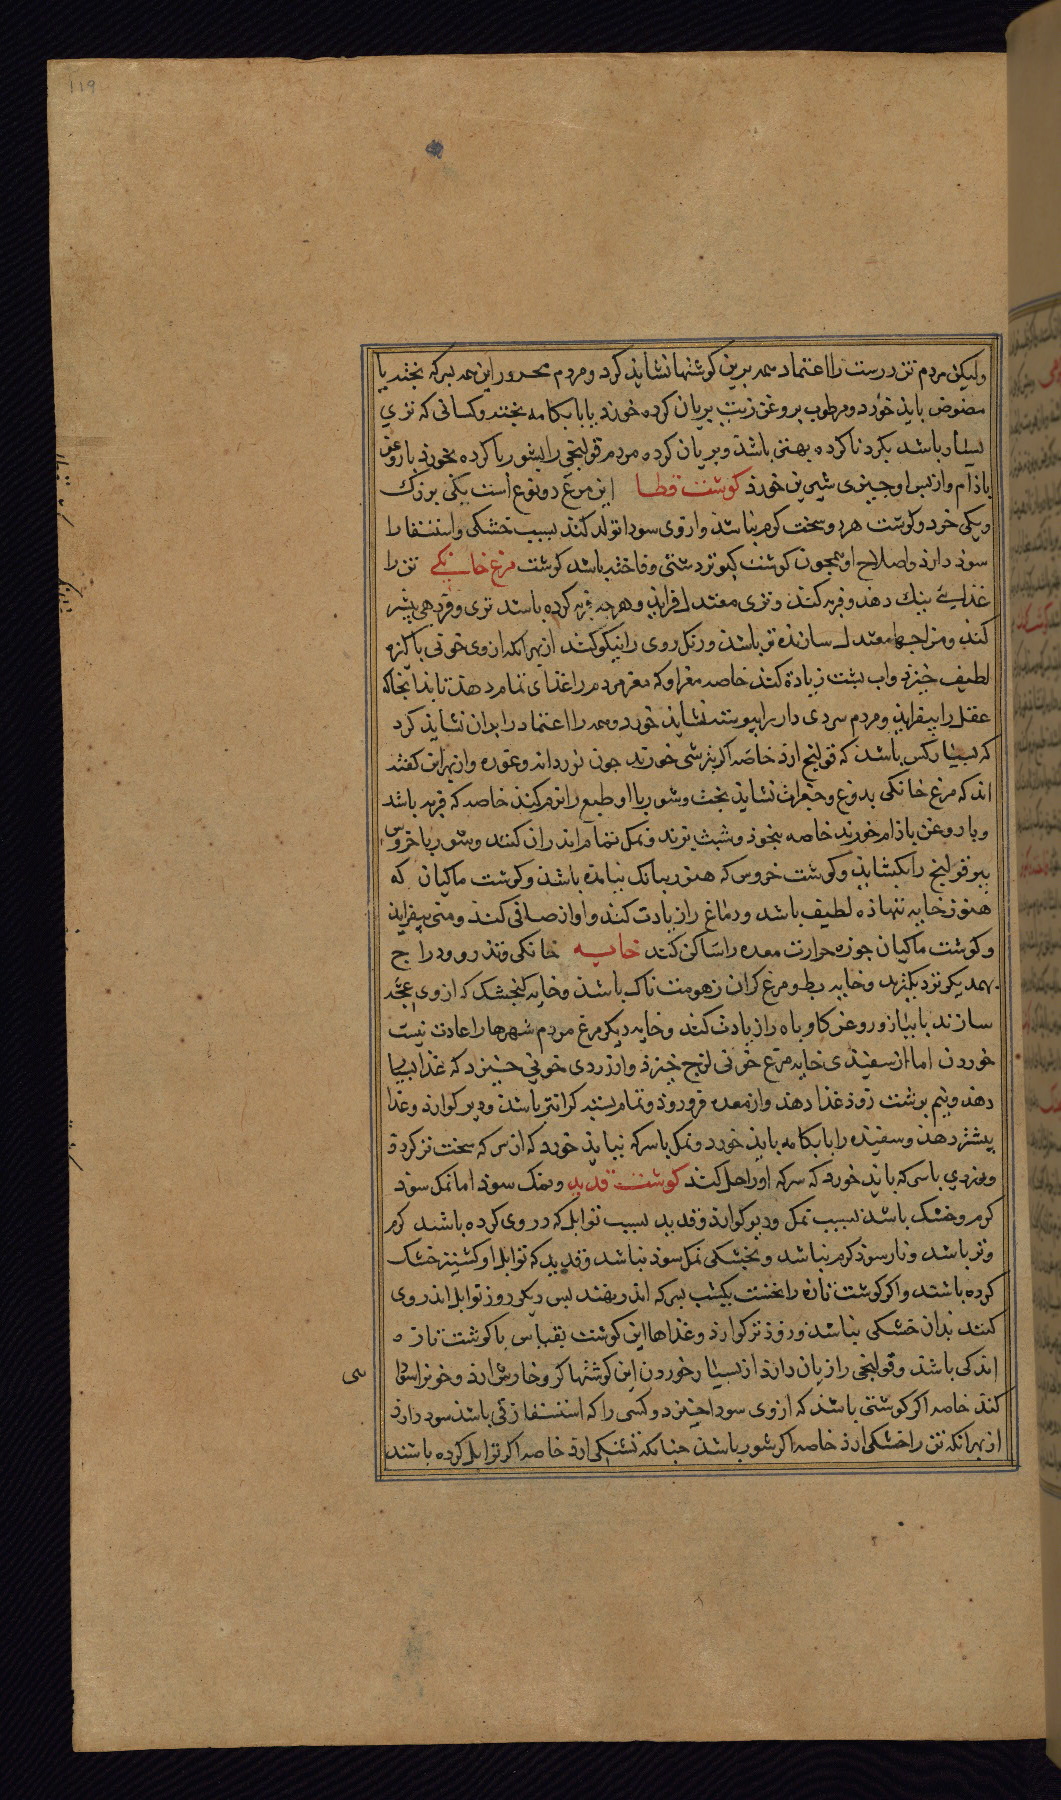 119
ولیکن مردم تن درست را اعتماد همه برین کوشتها نشاید کرد و مردم محرور این همه بسرکه پخته یا
مصوص باید خورد و مرطوب بروغن زیت بریان کرده خورند یا بابکامه پخته و کسانی که تری
بسیار باشد بکردناکرده بهتر باشد و بریان کرده مردم قولنجی را بشوربا کرده بخورند با روغن
باذام و از پس او چیزی شیرین خورند کوشت قطا این مرغ دو نوع است یکی بزرک
و یکی خرد و کوشت هر دو سخت کرم نباشد و از وی سودا تولد کند بسبب خشکی و استسقا را
سود دارد و اصلاح او همجون کوشت کبوتر دشتی و فاخته باشد کوشت مرغ خانکی تن را
غذای نیک دهد و فربه کند و تری معتدل فزاید و هرچه فربه کرده باشد تری و فربهی بیشتر
کند و مزاجها معتدل سازنده تر باشد و رنک روی را نیکو کند از بهر انکه از وی خونی پاکیزه
لطیف خیزد و اب پشت زیادة کند خاصه مغز او که مغز مردم را غذای تمام دهد تا بدانجا که
عقل را بیفزاید و مردم سردی دار را پیوسته نشاید خورد و همه را اعتماد را بران نشاید کرد
که بسیار کس باشد که قولنج ارد خاصه اکر بترشی خورند جون نورداند و غوره و از بهر این کفته
اند که مرغ خانکی بدوغ و جغرات نشاید پخت و شوربا او طبع را نرم کند خاصه که فربه باشد
و با روغن باذام خورند خاصه بنخود و شبت پزند و نمک تمام اندران کنند و شوربا خروس
پیر قولنج را بکشاید و کوشت خروس که هنوز ببانک نیامده باشد و کوشت ماکیان که
هنوز خایه ننهاده لطیف باشد و دماغ را زیادت کند و اواز صافی کند و منی بیفزاید
و کوشت ماکیان جوزه حرارت معده را ساکن کند خایه خانکی و تذرو و دراج
بهمدیکر نزدیکترند و خایه بط و مرغ کران زهومت ناک باشد و خایه کنجشک که از وی عجه
سازند با پیاز و روغن کاو باه را زیادت کند و خایه دیکر مرغ مردم شهرها را عادت نیست
خوردن اما از سفیدی خایه مرغ خونی لزج خیزد و از زردی خونی خیزد که غذا بسیار
دهد و نیم برشت زود غذا دهد و از معده فرو رود و تمام بسته کرانتر باشد و دیر کوارد و غذا
بیشتر دهد و سفیده را بابکامه باید خورد و نمک با سرکه نباید خورد که از سرکه سخت تر کردد
و زردی با سرکه باید خورد که سرکه او را حل کند کوشت قدید و نمک سود اما نمک سود
کرم و خشک باشد بسبب نمک و دیر کوارد و قدید بسبب توابل که در وی کرده باشد کرم
و تر باشد و نار سود کرم نباشد و بخشکی نمک سود نباشد و قدید که توابل او کشنیز خشک
کرده باشند و اکر کوشت تازه را نخست یکشب بسرکه اندر نهند پس دیکر روز توابل اندر وی
کنند بدان خشکی نباشد و زود تر کوارد و غذاها این کوشت بقیاس با کوشت تازه
اندکی باشد و قولنجی را زیان دارد از بسیار خوردن این کوشتها کر و خارش ارد و خون را سودا
کند خاصه اکر کوشتی باشد که از وی سودا خیزد و کسی را که استسقا زقی باشد سود دارد
از بهر انکه تن را خشکی ارد خاصه اکر شور باشد جنانکه تشنکی ارد خاصه اکر توابل کرده باشند